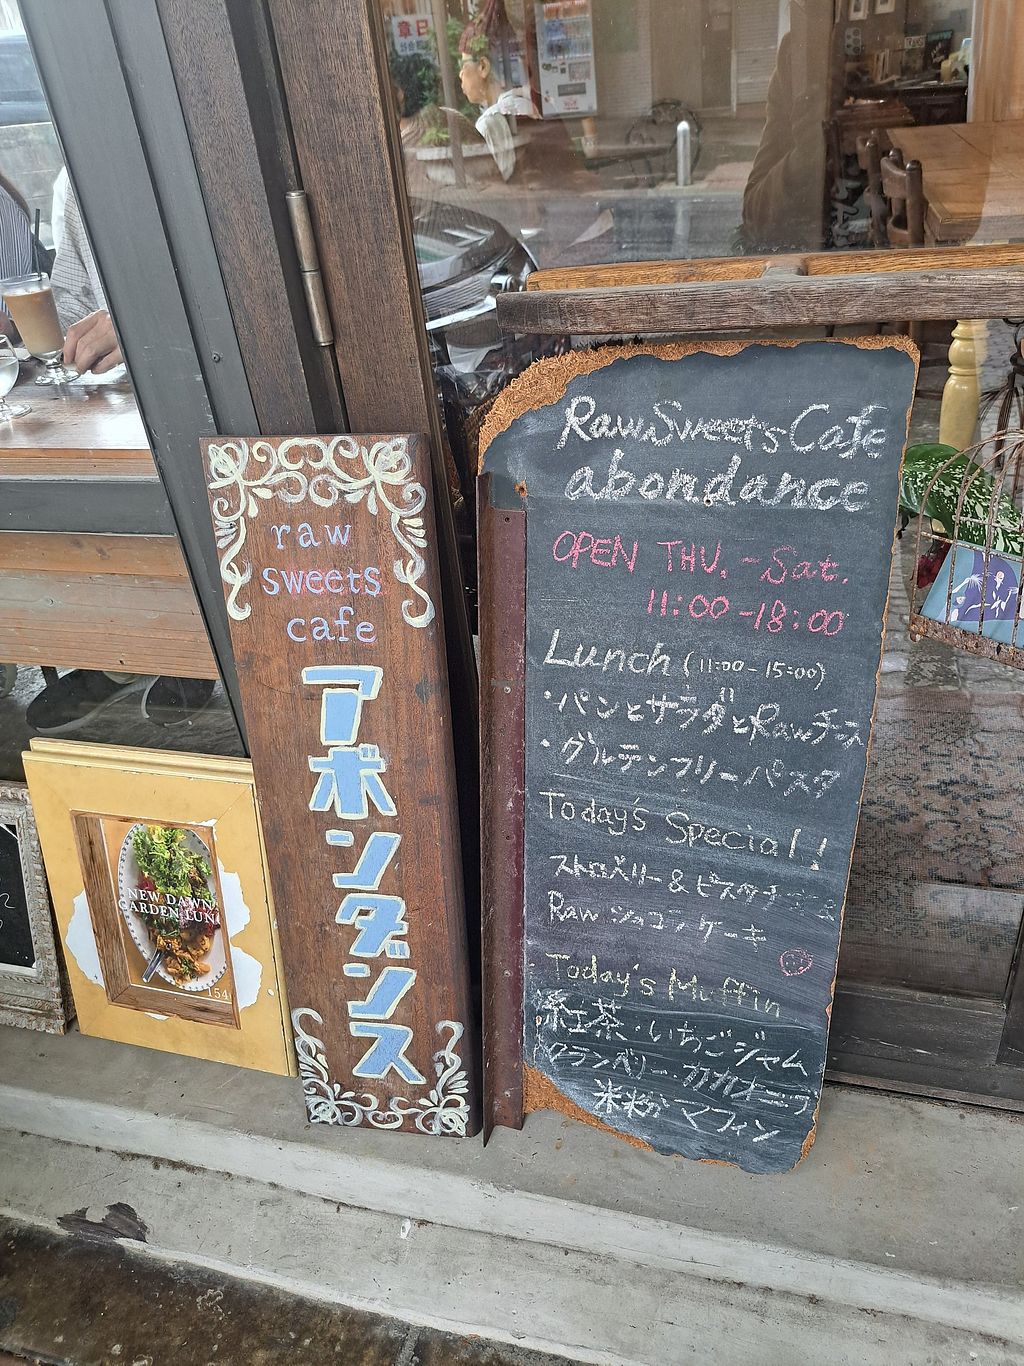 raw
sweets
cafe
アボンダンス
Raw Sweets Cafe
abondance
OPEN THU. - Sat.
11:00 - 18:00
Lunch (11:00 - 15:00)
・パンとサラダとRawチーズ
・グルテンフリーパスタ
Today's Special!!
ストロベリー&ピスタチオ
Raw ショコラケーキ
Today's Muffin
紅茶・いちごジャム
クランベリー カカオニブ
米粉マフィン
NEW DAWN
GARDEN LUN
154